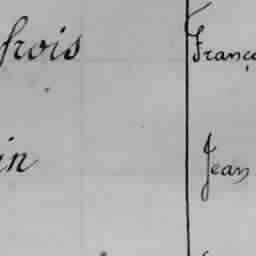 frois Franç
in Jean